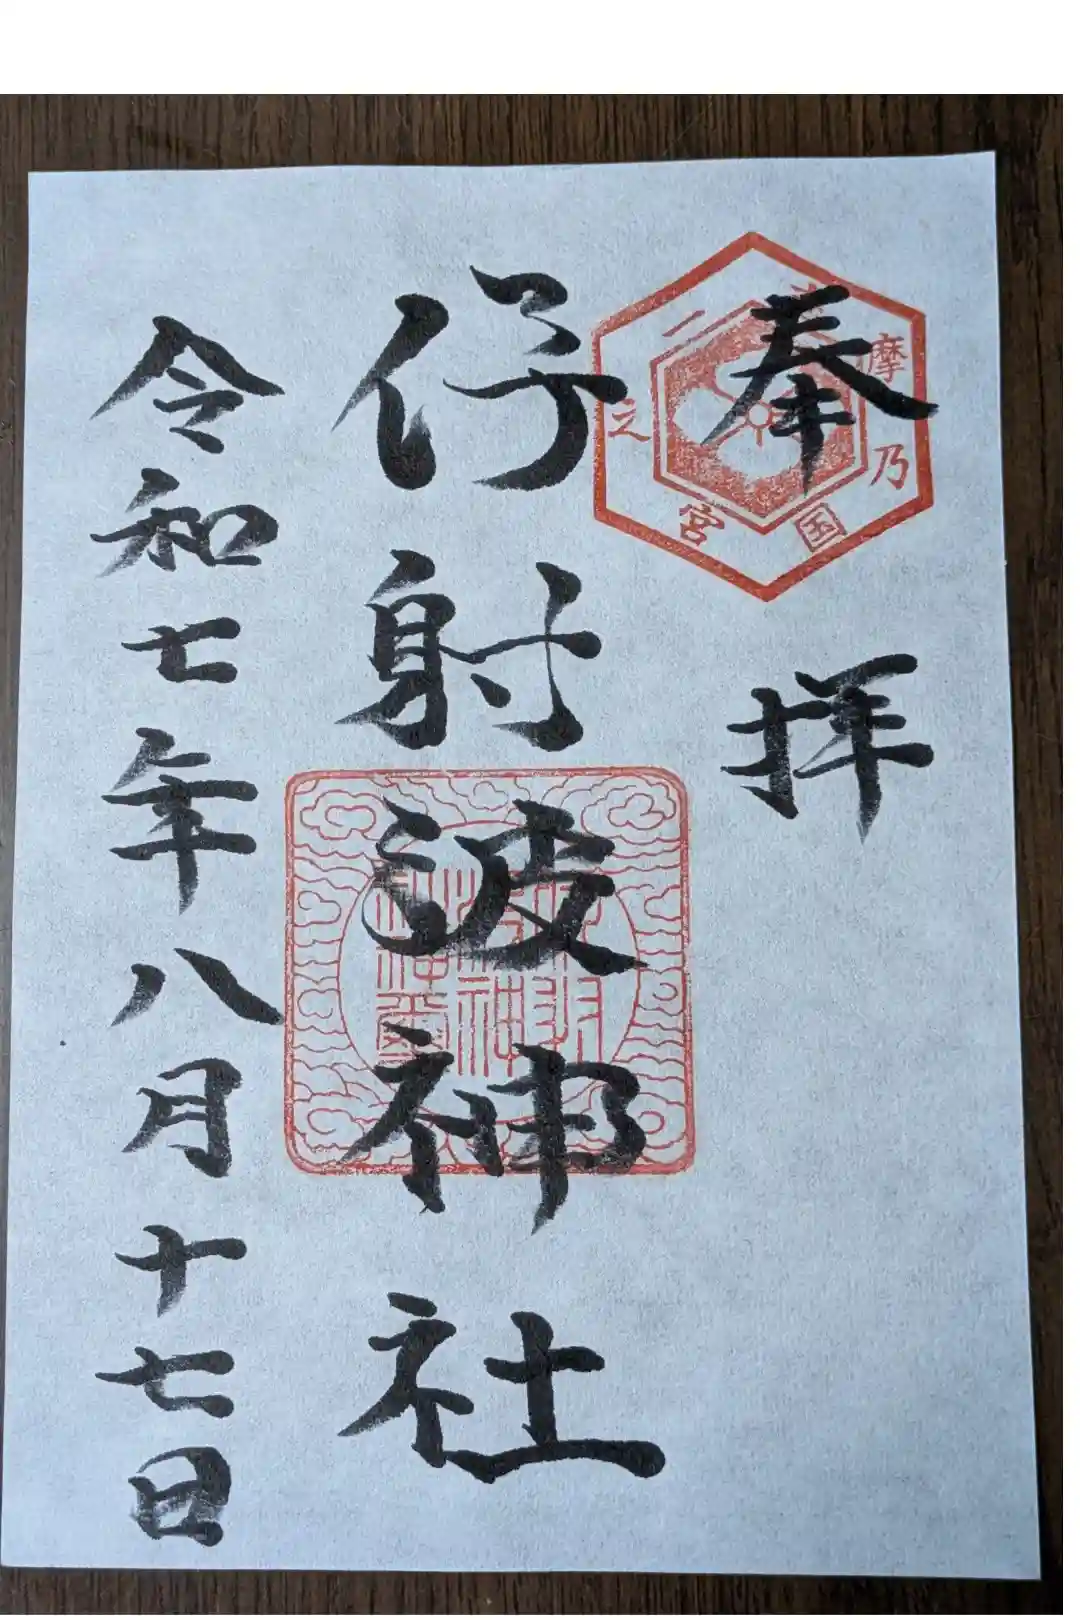 奉拝
志摩乃国一之宮
伊射波神社
令和七年八月十七日